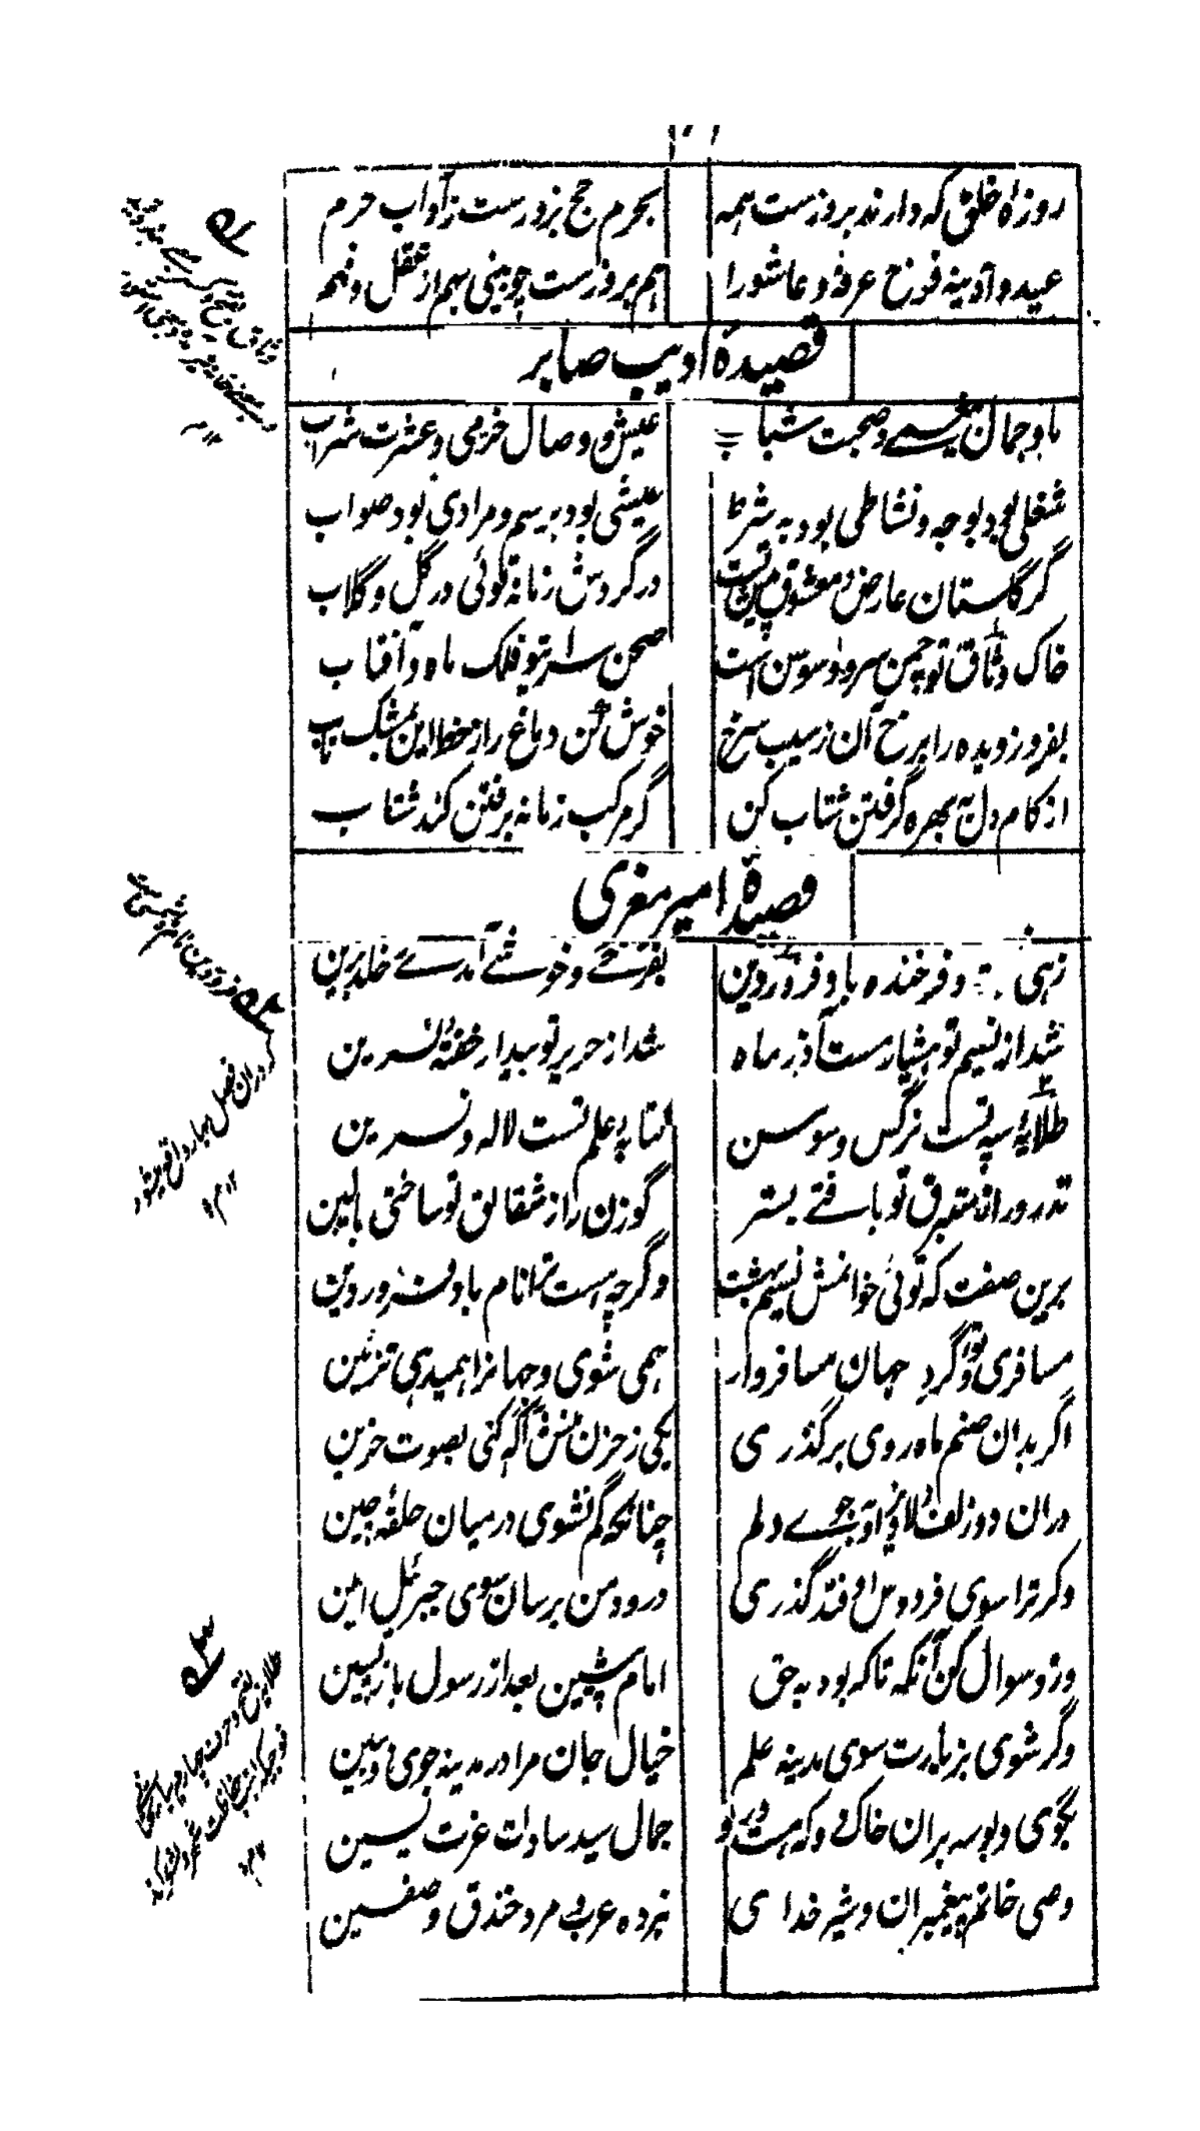 روزهٔ خلق که دارند بروزست همه
بحرم حج بزورست زآداب حرم
عید و آدینه فرخ عرفه و عاشورا
هم بروزست چو بینی بهم از عقل و فهم
قصیدهٔ ادیب صابر
ماه و جمال و صحبت شباب
عیش و وصال خرمی و عشرت شراب
شغلی بود بوجه و نشاطی بود به شرط
عیشی بود برسم و مرادی بود صواب
گر گلستان عارض معشوق پیش تست
در گردش زمانه توئی در گل و گلاب
خاک وثاق تو چمن سرو و سوسن است
صحن سرای تو فلک ماه و آفتاب
بفروز دیده را برخ آن ز سیب سرخ
خوش کن دماغ را ز خط این بمشک ناب
از کام دل به بهره گرفتن شتاب کن
گر مرکب زمانه برفتن کند شتاب
قصیدهٔ امیر معزی
زهی و فرخنده باد فروردین
بفرخی و خوشی آمدی ز خلد برین
شد از نسیم تو هشیار مست آذر ماه
شد از حریر تو بیدار خفتهٔ نسرین
طلایهٔ سپه تست نرگس و سوسن
کتابهٔ علم تست لاله و نسرین
تذرو را ز ستبرق تو بافتی بستر
گوزن را ز شقائق تو ساختی بالین
برین صفت که توئی خوانمش نسیم بهشت
وگرچه هست ترا نام باد فروردین
مسافری تو و گرد جهان مسافروار
همی شوی و جهانرا همیدهی تزئین
اگر بدان صنم ماه روی برگذری
یکی ز حزن منش آگه کنی بصوت حزین
دران دو زلف دلاویز او بجوی دلم
چنانکه گم نشوی در میان حلقهٔ چین
وگر ترا سوی فردوس اوفتد گذری
درود من برسان سوی جبرئیل امین
وزو سوال کن آنکه تا که بود به حق
امام پیشین بعد از رسول بازپسین
وگر شوی بزیارت سوی مدینه علم
خیال جان مرا در مدینه جوی و ببین
بگوی و بوسه بران خاک ده که هست درو
جمال سید سادات عزت یسین
وصی خاتم پیغمبران و شیر خدای
نبرده عربی مرد خندق و صفین
۵۱
۵۲
۵۳